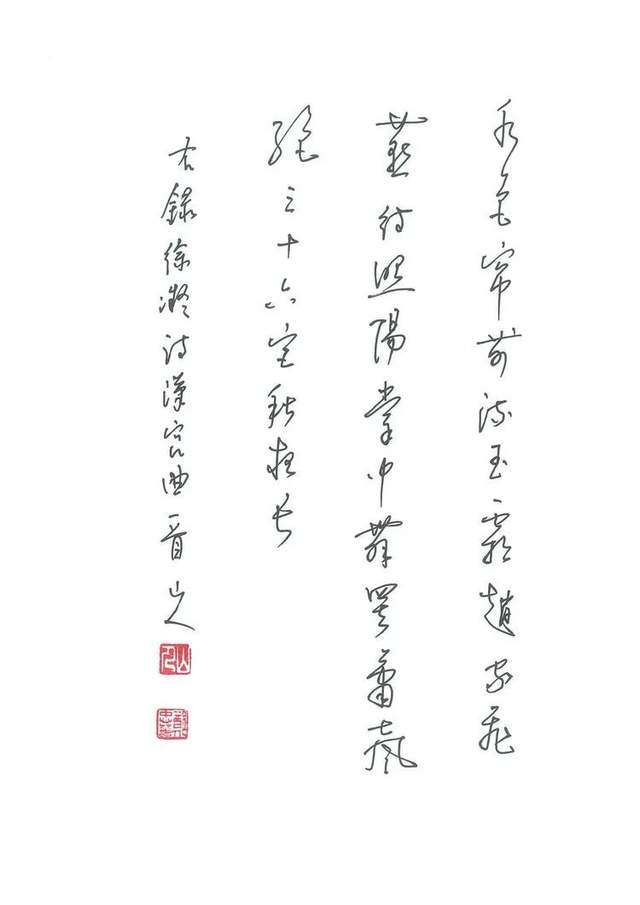 水色帘前流玉霜趙家飛
燕侍照陽掌中舞罷簫聲
絕三十六宮秋夜長
右録徐凝詩漢宮曲一首山人
山人